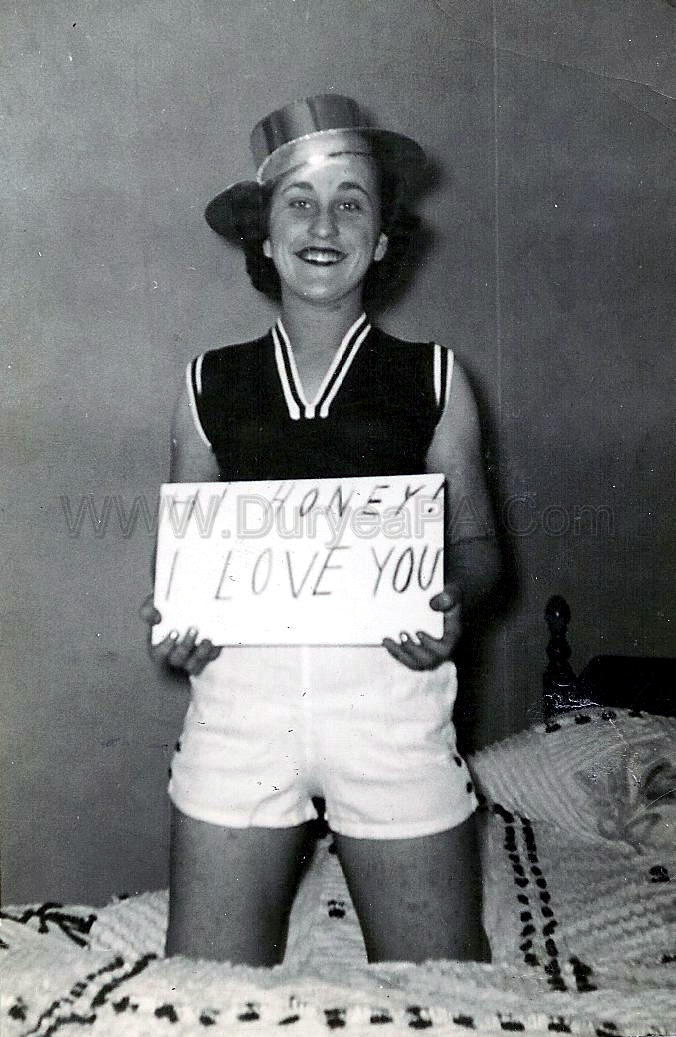 HI HONEY!
WWW.DuryeaPA.Com
I LOVE YOU